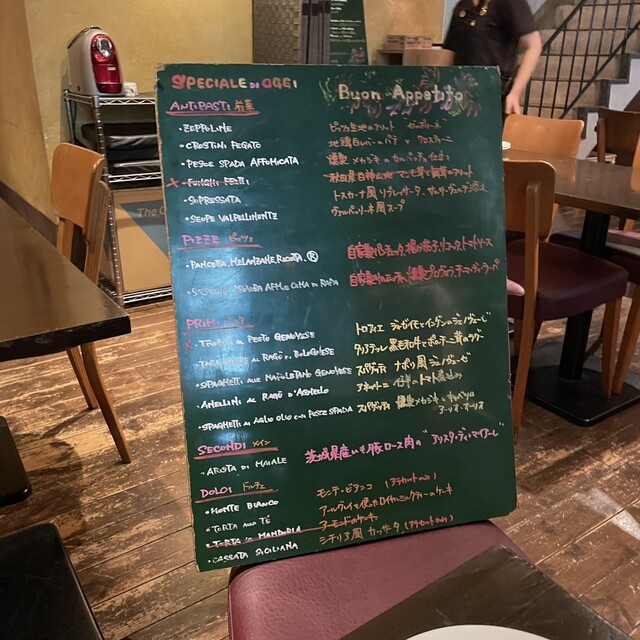 SPECIALE DI OGGI Buon Appetito
ANTIPASTI 前菜
・ZEPPOLINE ピッツァ生地のフリット ゼッポリーネ
・CROSTINI FEGATO 地鶏白レバーのパテ クロスティーニ
・PESCE SPADA AFFUMICATA 燻製メカジキのカルパッチョ仕立て
・FUNGHI FRITTI
・SOPRESSATA
・SEUPE VALPELLINENTE ヴァルペリーネ風スープ
PIZZE ピッツェ
・PANCETTA, MELANZANE, RICOTTA, R 自家製パンチェッタ、揚げ茄子、リコッタ、トマトソース
PRIMI
AL PESTO GENOVESE トロフィエ ジャガイモとインゲンのジェノヴェーゼ
AL RAGÙ BOLOGNESE タリアテッレ 黒毛和牛とポルチーニ茸のラグー
・SPAGHETTI ALLA NAPOLETANO GENOVESE スパゲッティ ナポリ風ジェノヴェーゼ
・ANELLINI AL RAGÙ D'AGNELLO アネッリーニ 仔羊のトマト煮込み
・SPAGHETTI AL AGLIO OLIO CON PESCE SPADA スパゲッティ 燻製メカジキとキャベツの アーリオ・オーリオ
SECONDI メイン
・ARISTA DI MAIALE 茨城県産いも豚ロース肉の"アリスタ・ディ・マイアーレ"
DOLCI ドルチェ
・MONTE BIANCO モンテ・ビアンコ (アラカルトのみ)
・TORTA ALLA TÈ アールグレイを使ったロイヤルミルクティーのケーキ
・TORTA DI MANDORLA アーモンドのケーキ
・CASSATA SICILIANA シチリア風 カッサータ (アラカルトのみ)